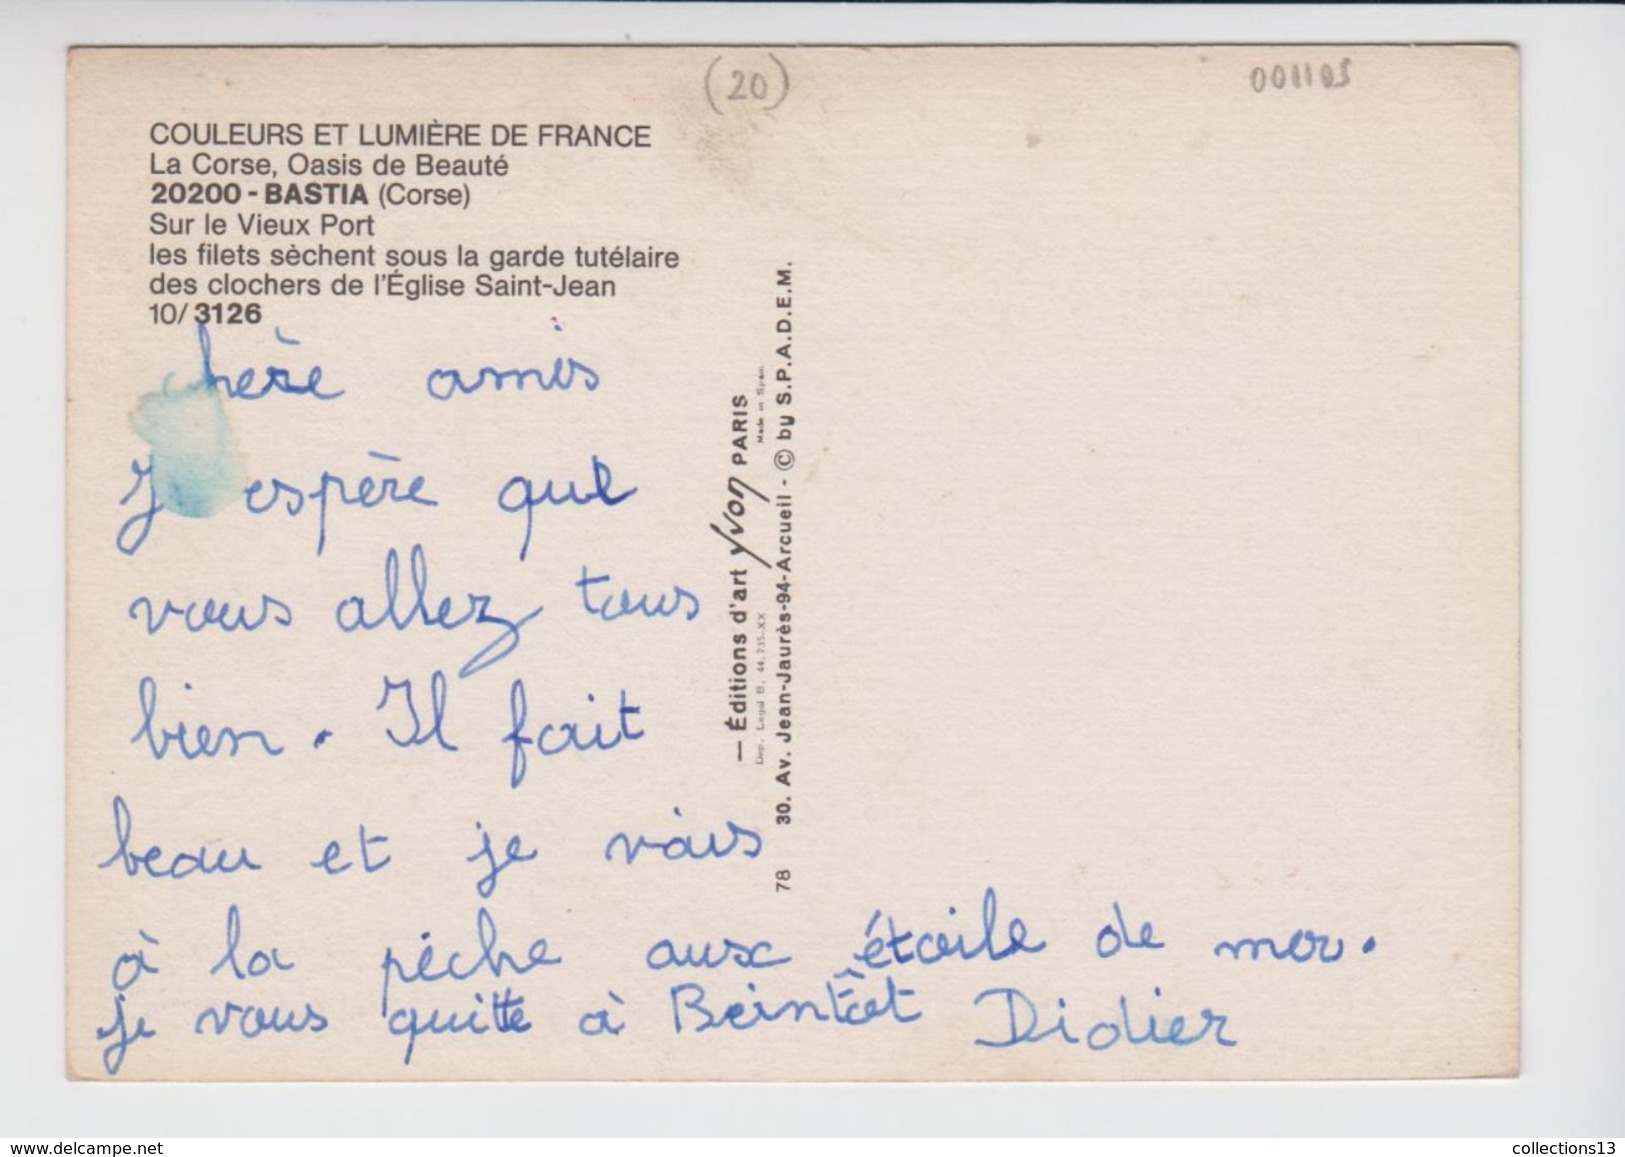 (20)
001105
COULEURS ET LUMIÈRE DE FRANCE
La Corse, Oasis de Beauté
20200 - BASTIA (Corse)
Sur le Vieux Port
les filets sèchent sous la garde tutélaire
des clochers de l'Église Saint-Jean
10/ 3126
chère amis
J espère que
vous allez tous
bien. Il fait
beau et je vais
à la pêche aux étoile de mer.
je vous quitte à Beintôt Didier
— Éditions d'art Yvon PARIS
Dep. Legal B. 44.735-XX Made in Spain
78 30. Av. Jean-Jaurès-94-Arcueil - © by S.P.A.D.E.M.
www.delcampe.net
collections13